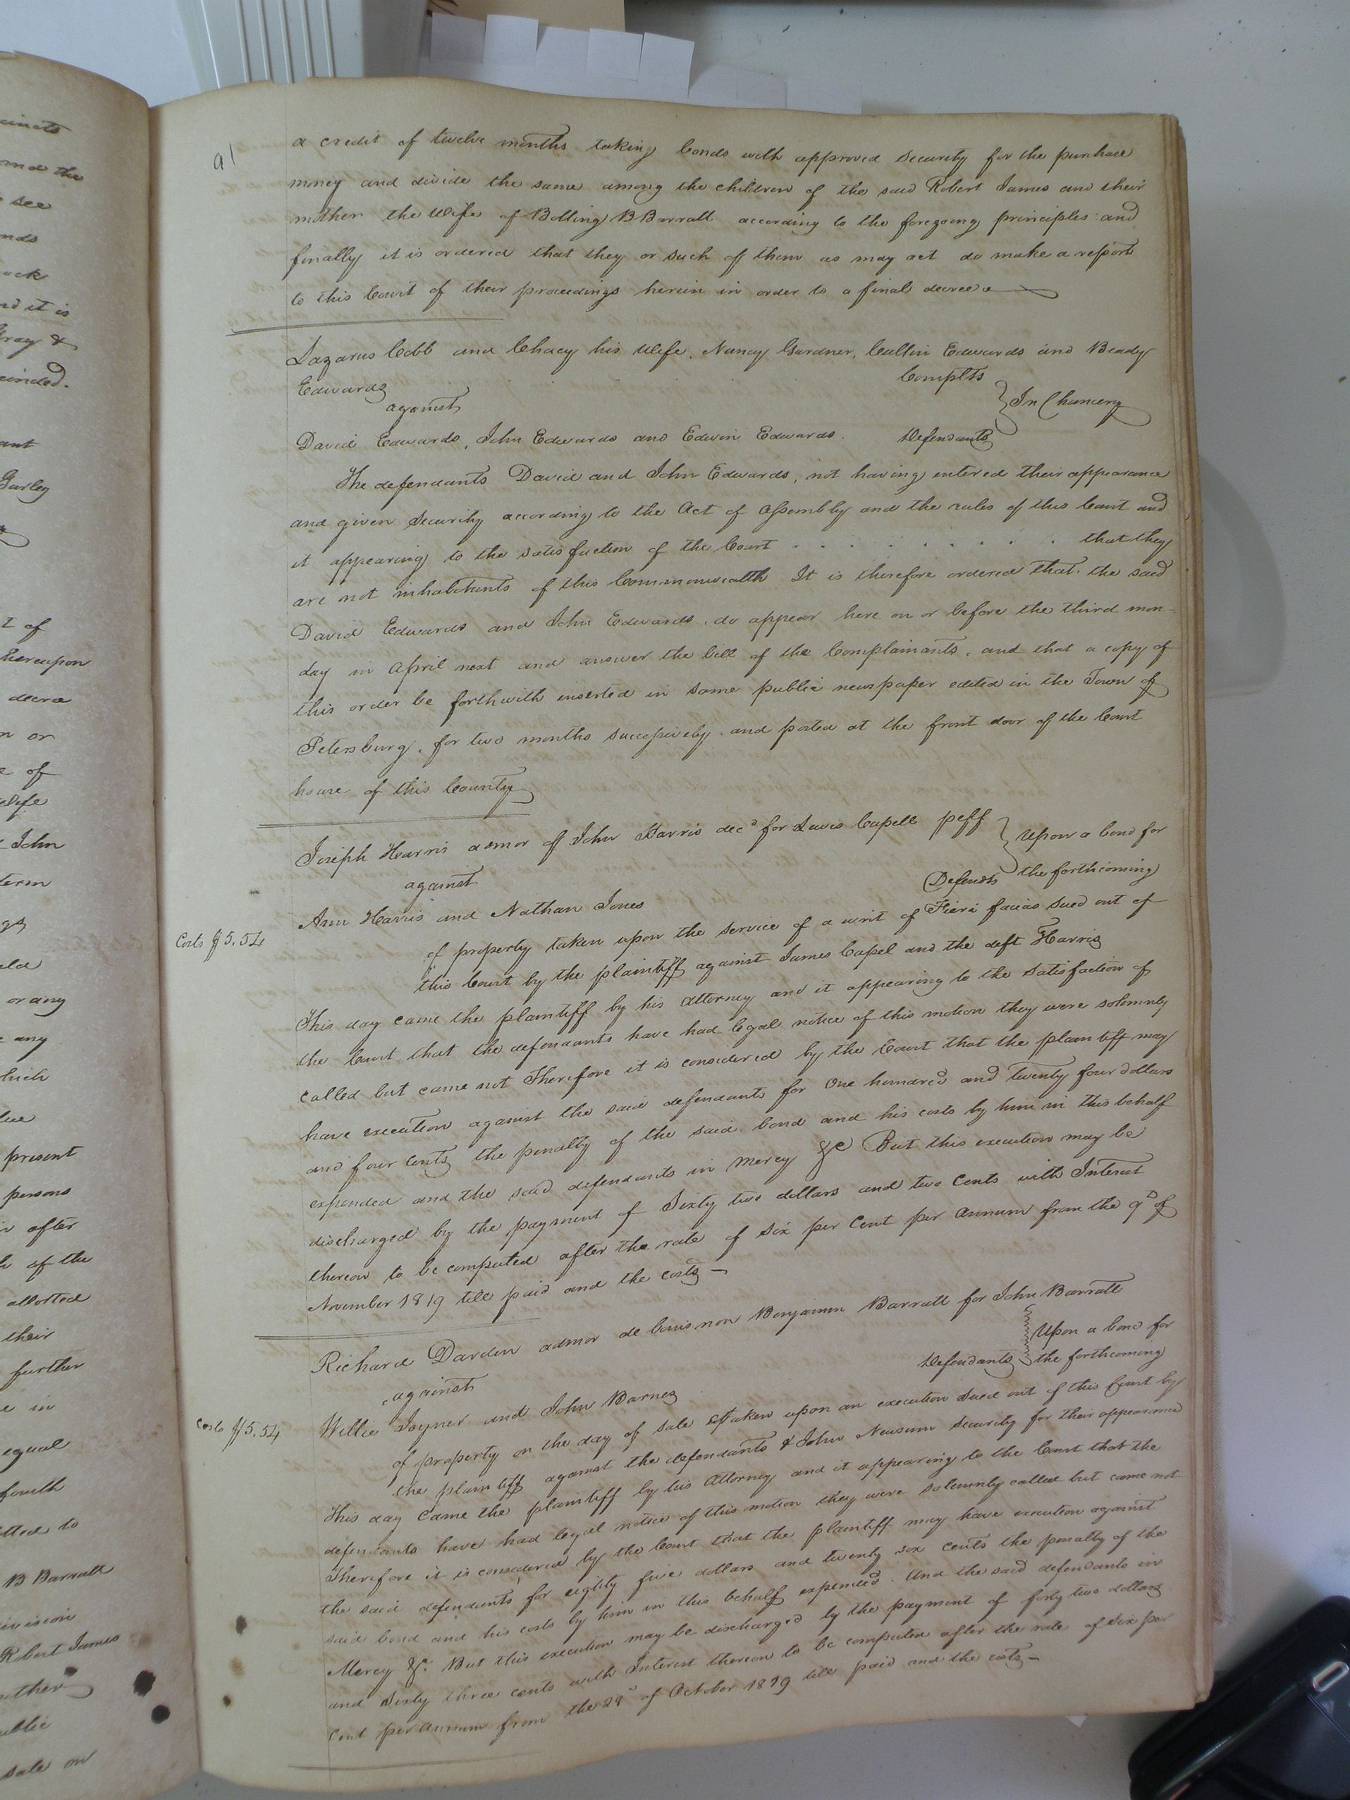 91
a credit of twelve months taking bonds with approved security for the purchase
money and divide the same among the children of the said Robert James and their
mother the wife of Bolling B Barratt according to the foregoing principles and
finally it is ordered that they or such of them as may act do make a report
to this Court of their proceedings herein in order to a final decree
Lazarus Cobb and Chacy his wife, Nancy Gardner, Cullin Edwards and Beady
Edwards Complts
against In Chancery
David Edwards, John Edwards and Edwin Edwards. Defendants
The defendants David and John Edwards, not having entered their appearance
and given security according to the Act of Assembly and the rules of this Court and
it appearing to the satisfaction of the Court . . . . . . . . . that they
are not inhabitants of this Commonwealth It is therefore ordered that the said
David Edwards and John Edwards do appear here on or before the third mon-
day in April next and answer the bill of the Complainants, and that a copy of
this order be forthwith inserted in some public newspaper edited in the Town of
Petersburg, for two months successively, and posted at the front door of the Court
house of this County
Joseph Harris admor of John Harris decd for Lewis Capell peff Upon a bond for
against Defends the forthcoming
Ann Harris and Nathan Jones
Costs $5.54 of property taken upon the service of a writ of Fieri facias sued out of
this Court by the plaintiff against James Capel and the deft Harris
This day came the plaintiff by his attorney and it appearing to the satisfaction of
the Court that the defendants have had legal notice of this motion they were solemnly
called but came not Therefore it is considered by the Court that the plaintiff may
have execution against the said defendants for One hundred and twenty four dollars
and four cents the penalty of the said bond and his costs by him in this behalf
expended and the said defendants in mercy &c But this execution may be
discharged by the payment of Sixty two dollars and two Cents with Interest
thereon to be computed after the rate of six per Cent per annum from the 9d of
November 1819 till paid and the costs —
Richard Darden admor de bonis non Benjamin Barratt for John Barratt
against Defendants Upon a bond for
Willie Joyner and John Barnes the forthcoming
Costs $5.54 of property on the day of sale taken upon an execution sued out of this Court by
the plaintiff against the defendants & John Newsum security for their appearance
This day came the plaintiff by his attorney and it appearing to the Court that the
defendants have had legal notice of this motion they were solemnly called but came not
Therefore it is considered by the Court that the plaintiff may have execution against
the said defendants for eighty five dollars and twenty six cents the penalty of the
said bond and his costs by him in this behalf expended. And the said defendants in
Mercy &c. But this execution may be discharged by the payment of forty two dollars
and Sixty three cents with Interest thereon to be computed after the rate of six per
Cent per annum from the 29d of October 1819 till paid and the costs —